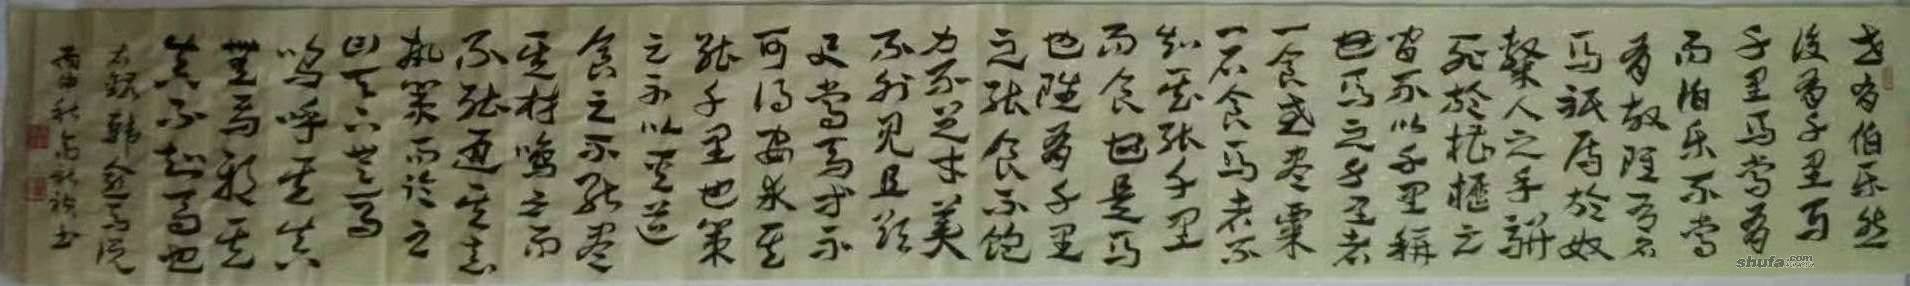 世有伯乐然
後有千里马
千里马常有
而伯乐不常
有故雖有名
马祗辱於奴
隸人之手骈
死於槽櫪之
间不以千里稱
也马之千里者
一食或尽粟
一石食马者不
知其能千里
而食也是马
也雖有千里
之能食不饱
力不足才美
不外见且欲
与常马等不
可得安求其
能千里也策
之不以其道
食之不能尽
其材鳴之而
不能通其意
执策而临之
曰天下无马
嗚呼其真
無马邪其
真不知马也
右録韩愈马说
丙申秋 书
shufa.com